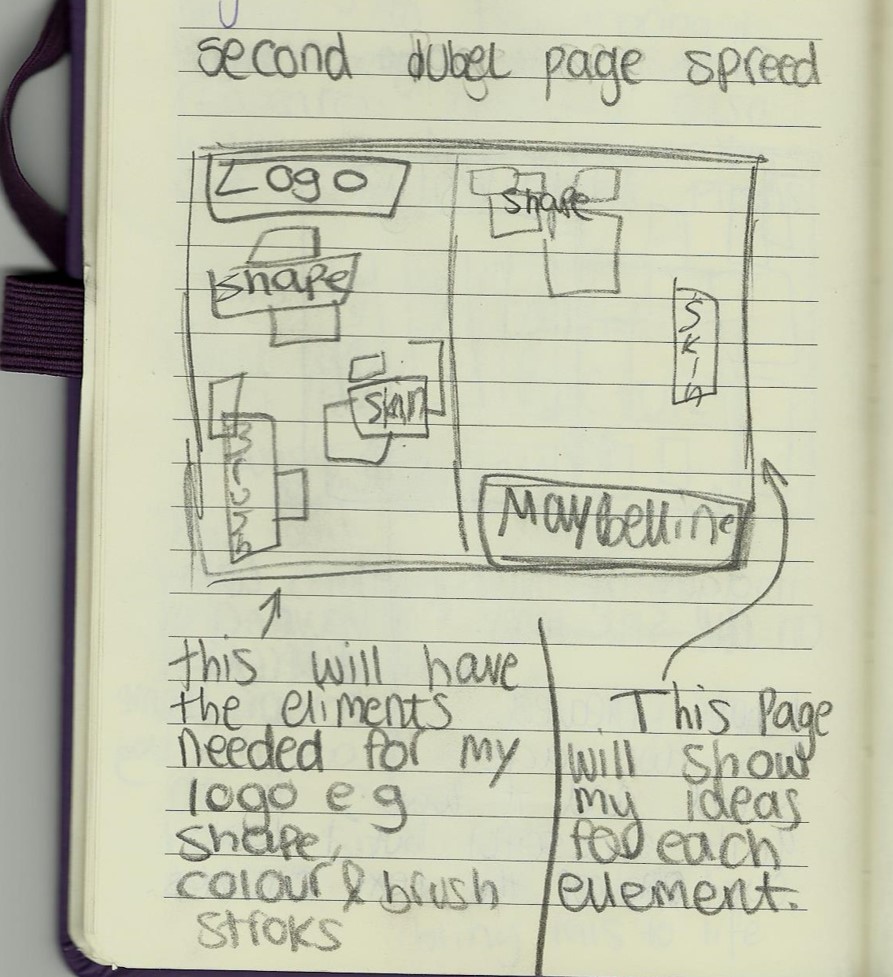 second dubel page spreed
Logo
shape
shape
SKIN
skin
Maybelline
this will have
the eliments
needed for my
logo e g
shape,
colour & brush
stroks
This page
will show
my ideas
for each
ellement.